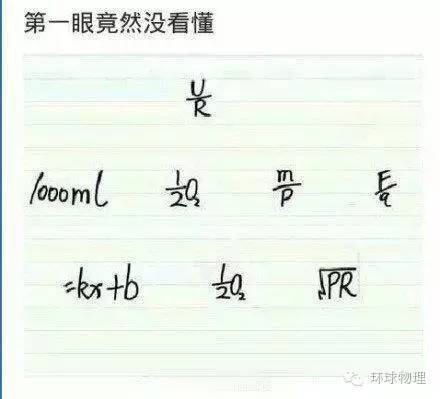 第一眼竟然没看懂
U/R
1000ml ½O₂ m/ρ F/q
=kx+b ½O₂ √PR
环球物理